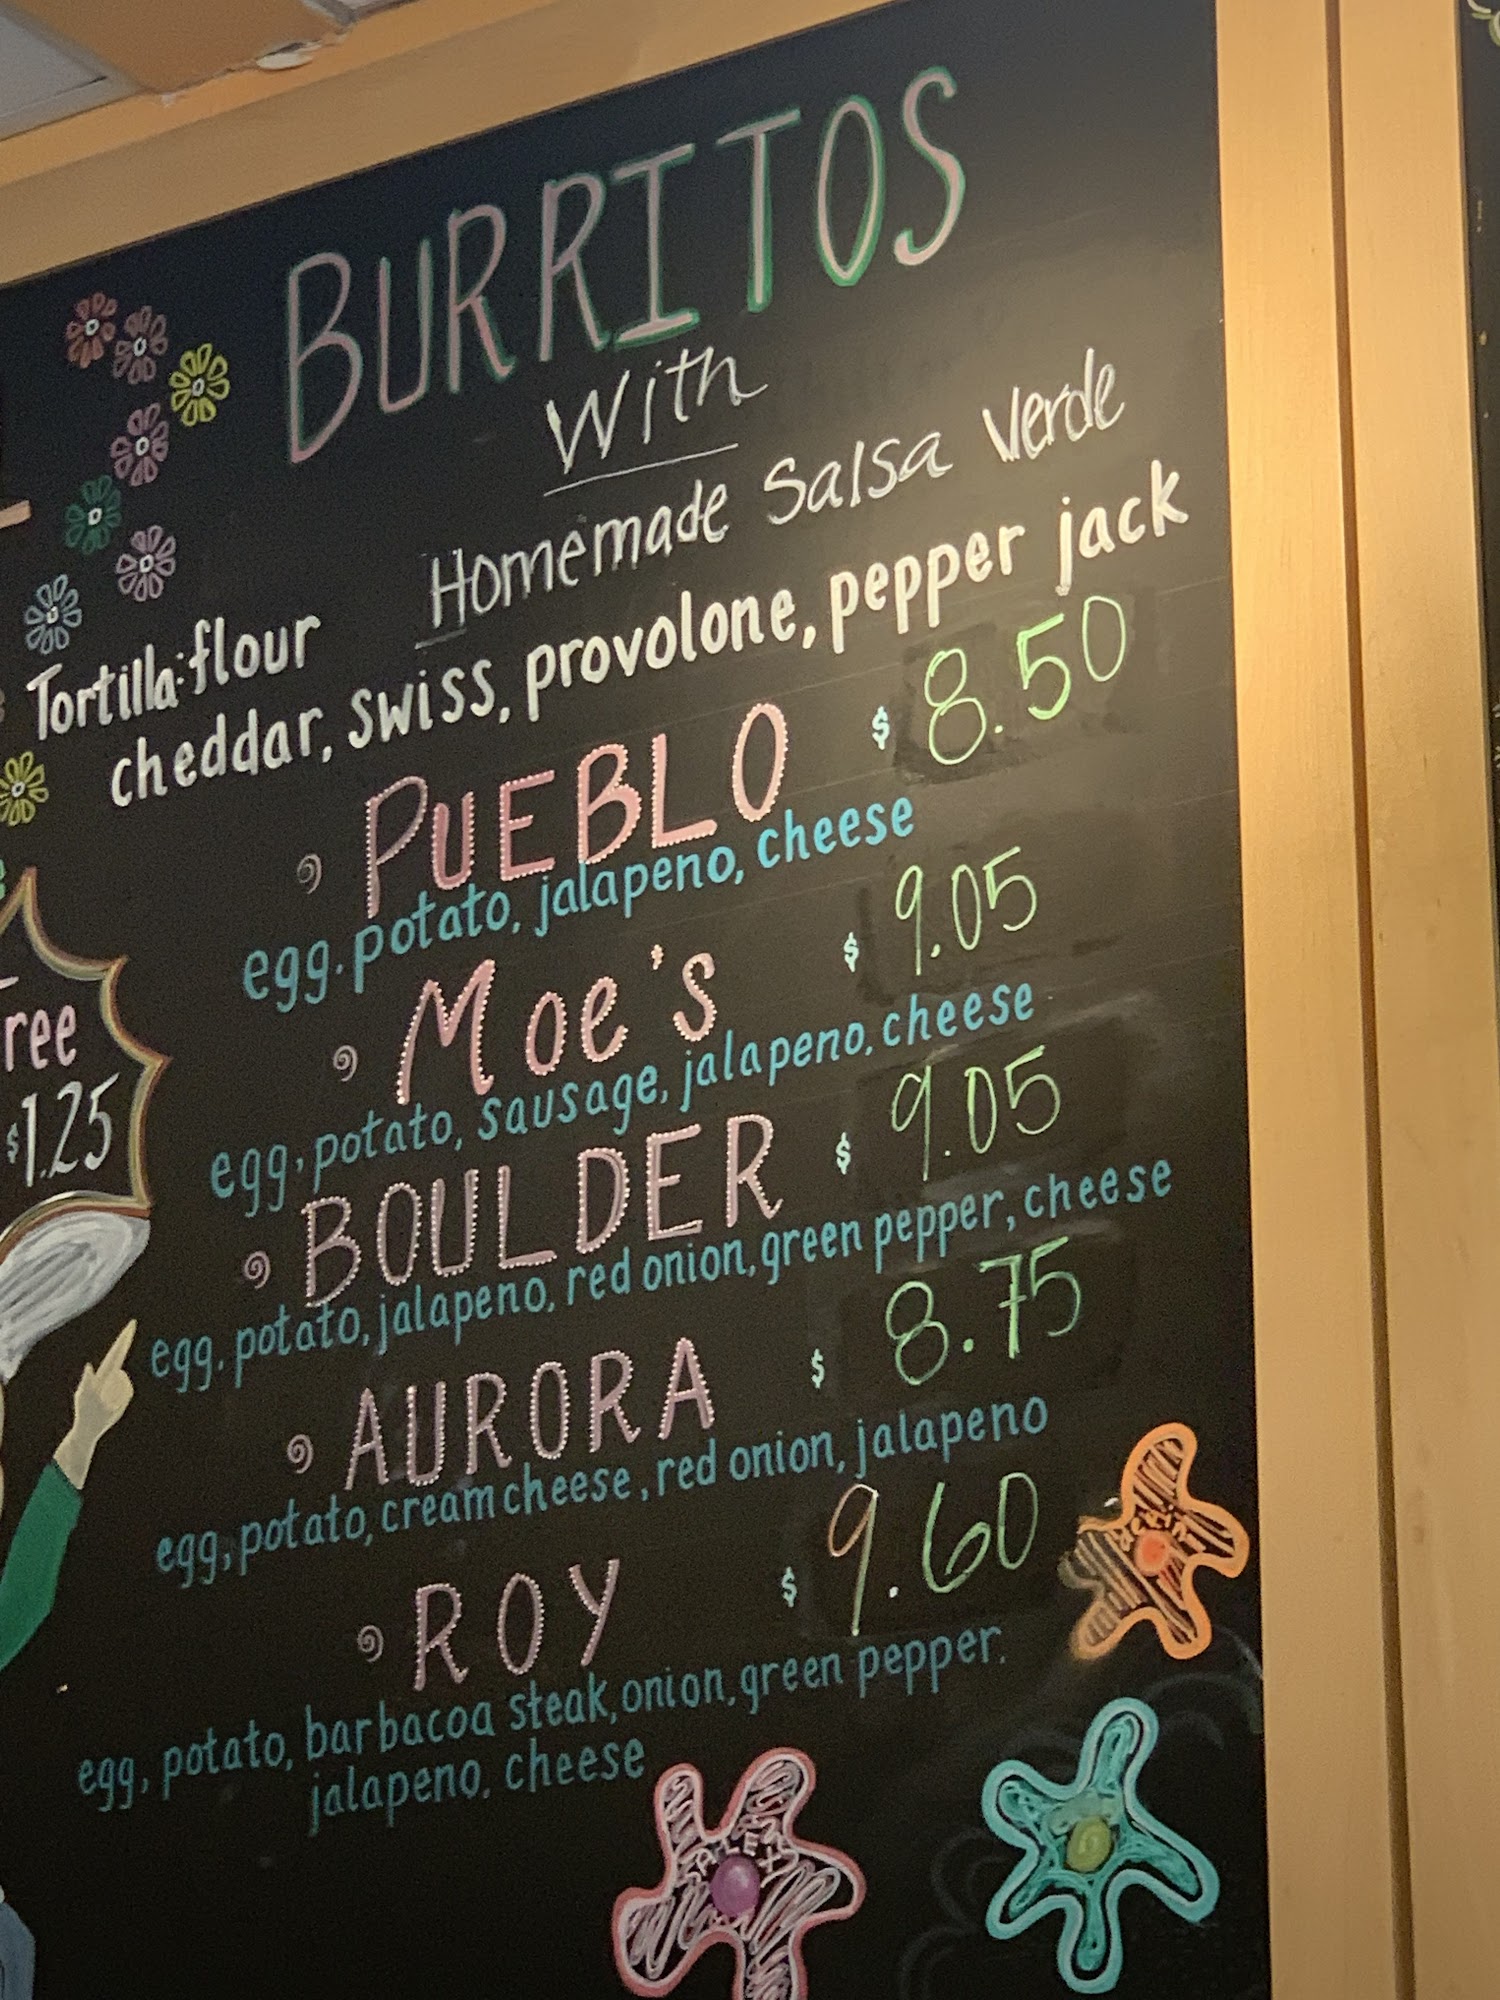 BURRITOS
With
Homemade Salsa Verde
Tortilla: flour
cheddar, swiss, provolone, pepper jack
PUEBLO $ 8.50
egg, potato, jalapeno, cheese
Moe's $ 9.05
egg, potato, sausage, jalapeno, cheese
BOULDER $ 9.05
egg, potato, jalapeno, red onion, green pepper, cheese
AURORA $ 8.75
egg, potato, cream cheese, red onion, jalapeno
ROY $ 9.60
egg, potato, barbacoa steak, onion, green pepper,
jalapeno, cheese
ree
$1.25